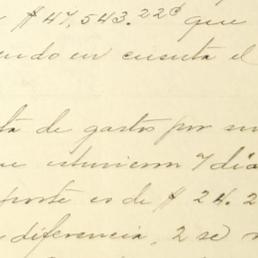 $47,543.22¢ que
endo en cuenta el
ta de gastos por su
ue estuvieron 7 dia
porte es de $24.2
diferencia, 2 se